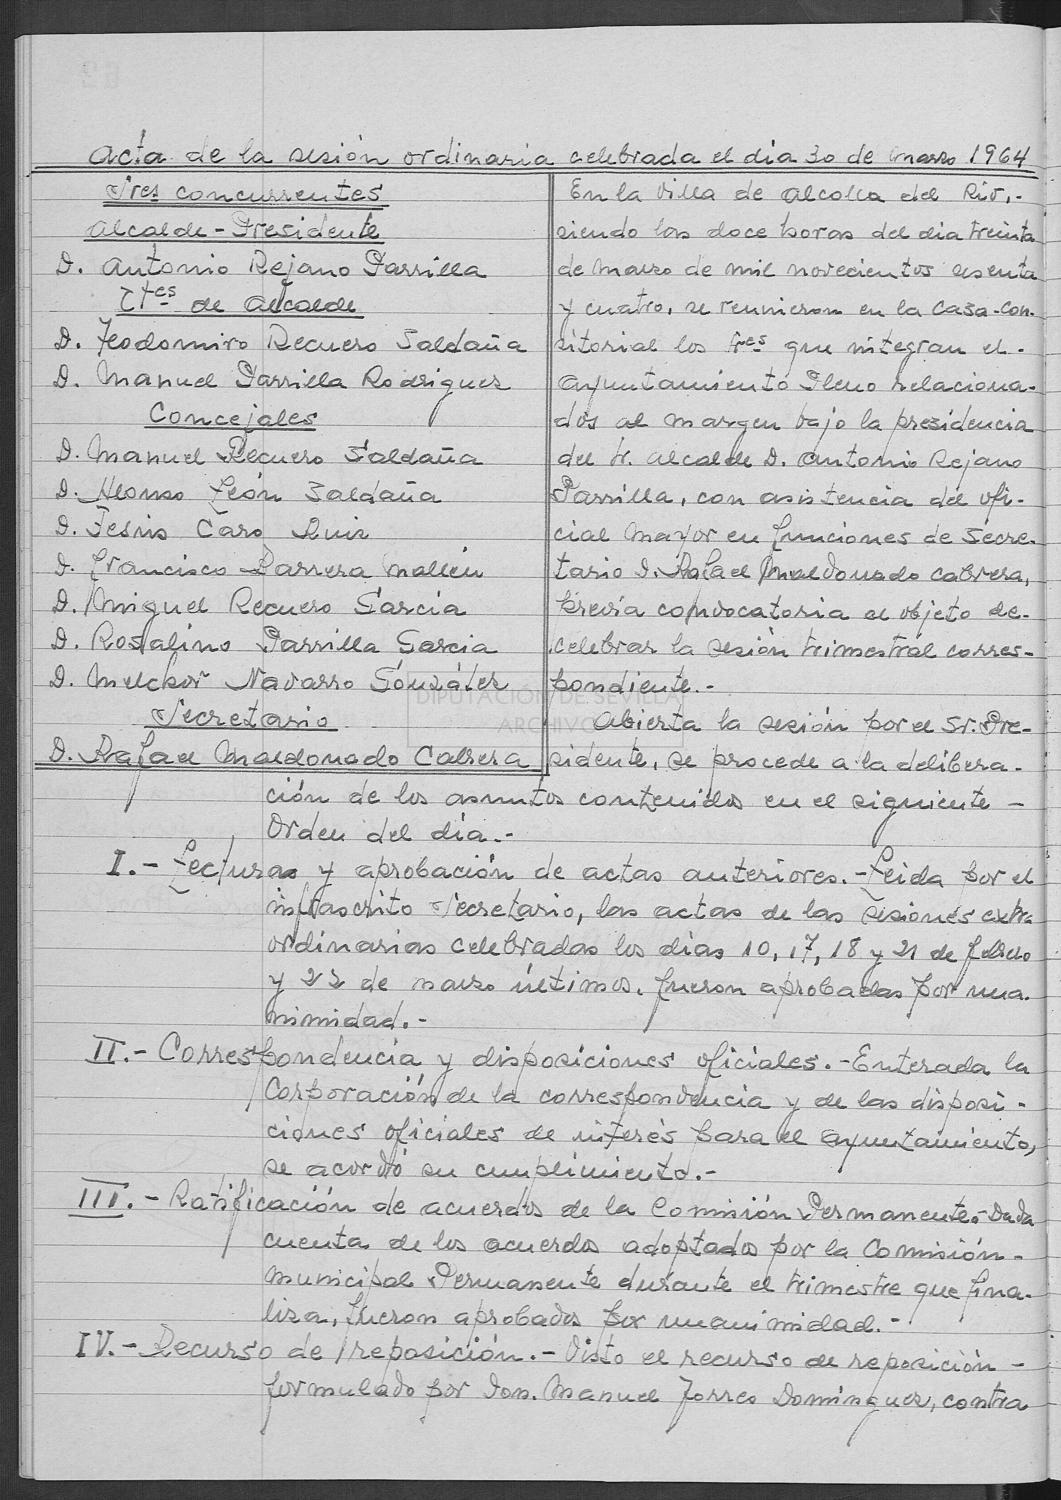 Acta de la sesión ordinaria celebrada el dia 30 de Marzo 1964
Sres concurrentes
Alcalde-Presidente
D. Antonio Rejano Parrilla
Ttes de Alcalde
D. Teodomiro Recuero Saldaña
D. Manuel Parrilla Rodriguez
Concejales
D. Manuel Recuero Saldaña
D. Alonso León Saldaña
D. Jesús Caro Ruiz
D. Francisco Barrera Mallén
D. Miguel Recuero García
D. Rosalino Parrilla Garcia
D. Melchor Navarro González
Secretario
D. Rafael Maldonado Cabrera
En la Villa de Alcolea del Rio,-
siendo las doce horas del dia treinta
de Marzo de mil novecientos sesenta
y cuatro, se reunieron en la Casa-Con-
sitorial los Sres que integran el-
Ayuntamiento Pleno relaciona-
dos al margen bajo la presidencia
del Sr. Alcalde D. Antonio Rejano
Parrilla, con asistencia del ofi-
cial Mayor en funciones de Secre-
tario D. Rafael Maldonado Cabrera,
previa convocatoria al objeto de-
celebrar la sesión trimestral corres-
pondiente.-
Abierta la sesión por el Sr. Pre-
sidente, se procede a la delibera-
ción de los asuntos contenidos en el siguiente -
Orden del día.-
I.- Lecturas y aprobación de actas anteriores.- Leida por el
infrascrito Secretario, las actas de las sesiones extra
ordinarias celebradas los días 10, 17, 18 y 21 de febrero
y 22 de marzo últimos, fueron aprobadas por una-
nimidad.-
II.- Correspondencia y disposiciones oficiales.- Enterada la
Corporación de la correspondencia y de las disposi-
ciones oficiales de interés para el Ayuntamiento,
se acordó su cumplimiento.-
III.- Ratificación de acuerdos de la Comisión Permanente.- Dada
cuenta de los acuerdos adoptados por la Comisión-
Municipal Permanente durante el trimestre que fina-
liza, fueron aprobados por unanimidad.-
IV.- Recurso de reposición.- Visto el recurso de reposición -
formulado por Don. Manuel Torres Dominguez, contra
DIPUTACIÓN DE SEVILLA
ARCHIVO